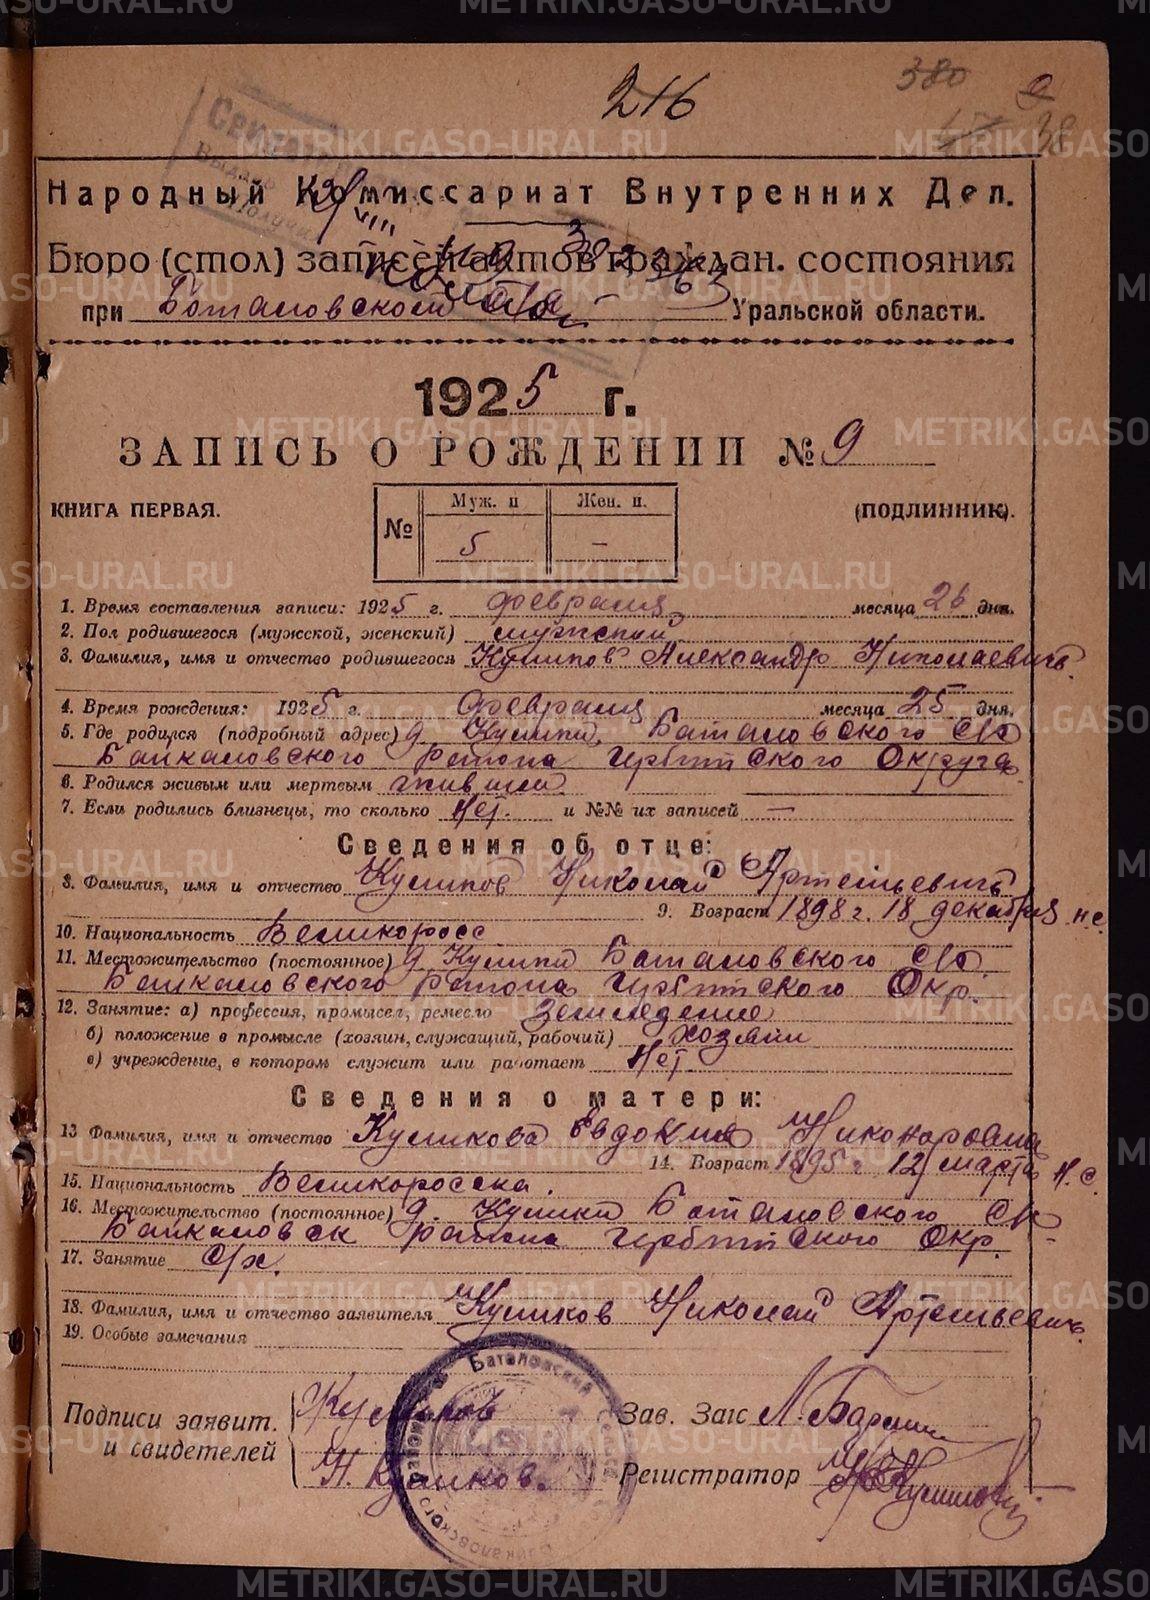 216
380
38
Народный Комиссариат Внутренних Дел.
Бюро (стол) записей актов граждан. состояния
при Баталовском с/с Уральской области.
1925 г.
ЗАПИСЬ О РОЖДЕНИИ № 9
КНИГА ПЕРВАЯ.
(ПОДЛИННИК).
№ Муж. п Жен. п.
5 —
1. Время составления записи: 1925 г. февраля месяца 26 дня.
2. Пол родившегося (мужской, женский) мужской
3. Фамилия, имя и отчество родившегося Куликов Александр Николаевич.
4. Время рождения: 1925 г. февраля месяца 25 дня.
5. Где родился (подробный адрес) д. Кулики, Баталовского с/с
Байкаловского района Ирбитского Округа
6. Родился живым или мертвым живым.
7. Если родились близнецы, то сколько Нет. и №№ их записей —
Сведения об отце:
8. Фамилия, имя и отчество Куликов Николай Артемьевич
9. Возраст 1898 г. 18 декабря н.с.
10. Национальность Великоросс.
11. Местожительство (постоянное) д. Кулики Баталовского с/с.
Байкаловского района Ирбитского Окр.
12. Занятие: а) профессия, промысел, ремесло Земледелие
б) положение в промысле (хозяин, служащий, рабочий) хозяин
в) учреждение, в котором служит или работает Нет.
Сведения о матери:
13 Фамилия, имя и отчество Куликова Евдокия Никоноровна
14. Возраст 1895 г 12 марта н.с.
15. Национальность Великоросска.
16. Местожительство (постоянное) д. Кулики Баталовского с/с
Байкаловск района Ирбитского Окр.
17. Занятие с/х.
18. Фамилия, имя и отчество заявителя Куликов Николай Артемьевич.
19. Особые замечания
Подписи заявит.
и свидетелей
Куликов
Н. Куликов.
Зав. Загс
Регистратор
Баталовский
Байкаловского
METRIKI.GASO-URAL.RU